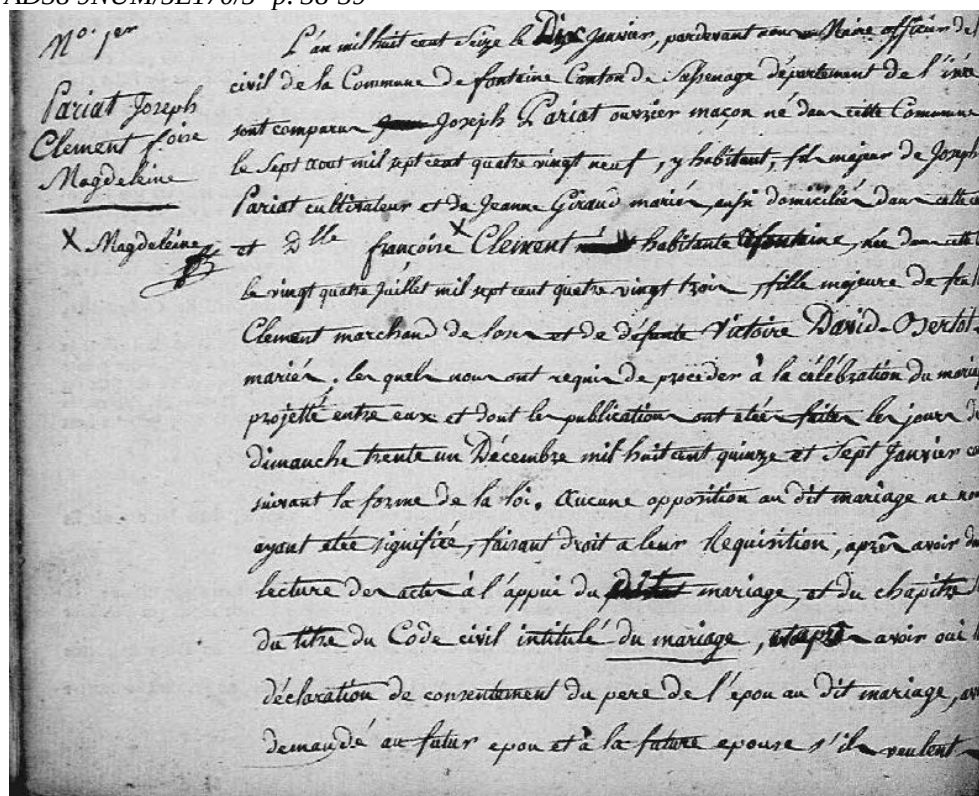 AD38 9NUM/5E170/3 p. 38-39
N.º 1er
Pariat Joseph
Clement foise
Magdeleine
X Magdeleine
L'an mil huit cent Seize le Dix Janvier, pardevant nous Maire officier de l'
civil de la Commune de fontaine Canton de Sassenage département de l'isère
sont comparus Joseph Pariat ouvrier maçon né dans cette Commune
le Sept aout mil sept cent quatre vingt neuf, y habitant, fils majeur de Joseph
Pariat cultivateur et de Jeanne Giraud mariés, aussi domiciliés dans cette
et Dlle françoise X Clement habitante à fontaine, née dans cette
le vingt quatre Juillet mil sept cent quatre vingt trois, fille majeure de
Clement marchand de et de défunte Victoire David-Bertot
mariés, les quels nous ont requis de procéder à la célébration du maria
projetté entre eux et dont les publications ont etées faites les jours de
dimanche trente un Décembre mil huit cent quinze et Sept Janvier
suivant la forme de la loi. Aucune opposition au dit mariage ne nous
ayant etée signifiée, faisant droit a leur Requisition, après avoir
lecture des actes à l'appui du mariage, et du chapitre
du titre du Code civil intitulé du mariage, et après avoir oui
déclaration de consentement du pere de l'epou au dit mariage,
demandé au futur epou et à la future epouse s'ils veulent